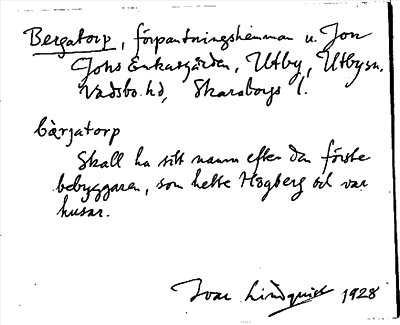 Bergatorp, förpantningshemman u. Jon
Johs Enkasgården, Utby, Utby sn,
Vadsbo hd, Skaraborgs l.
bärjatorp
Skall ha sitt namn efter den förste
bebyggaren, som hette Högberg och var
husar.
Ivar Lindquist 1928